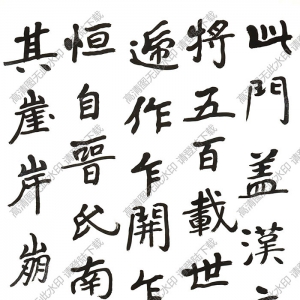 此門蓋漢
將五百載世
遞作乍開乍
恒自晉氏南
其崖岸崩